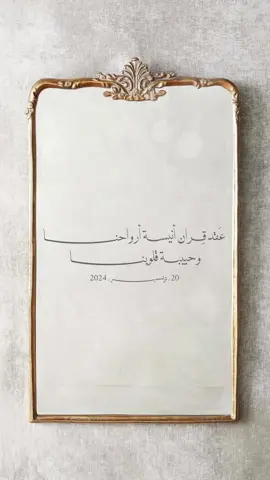 عَقد قِران أنيسة أرواحنـــا
وحبيبـة قلوبنـــا
20 ديسمبر 2024